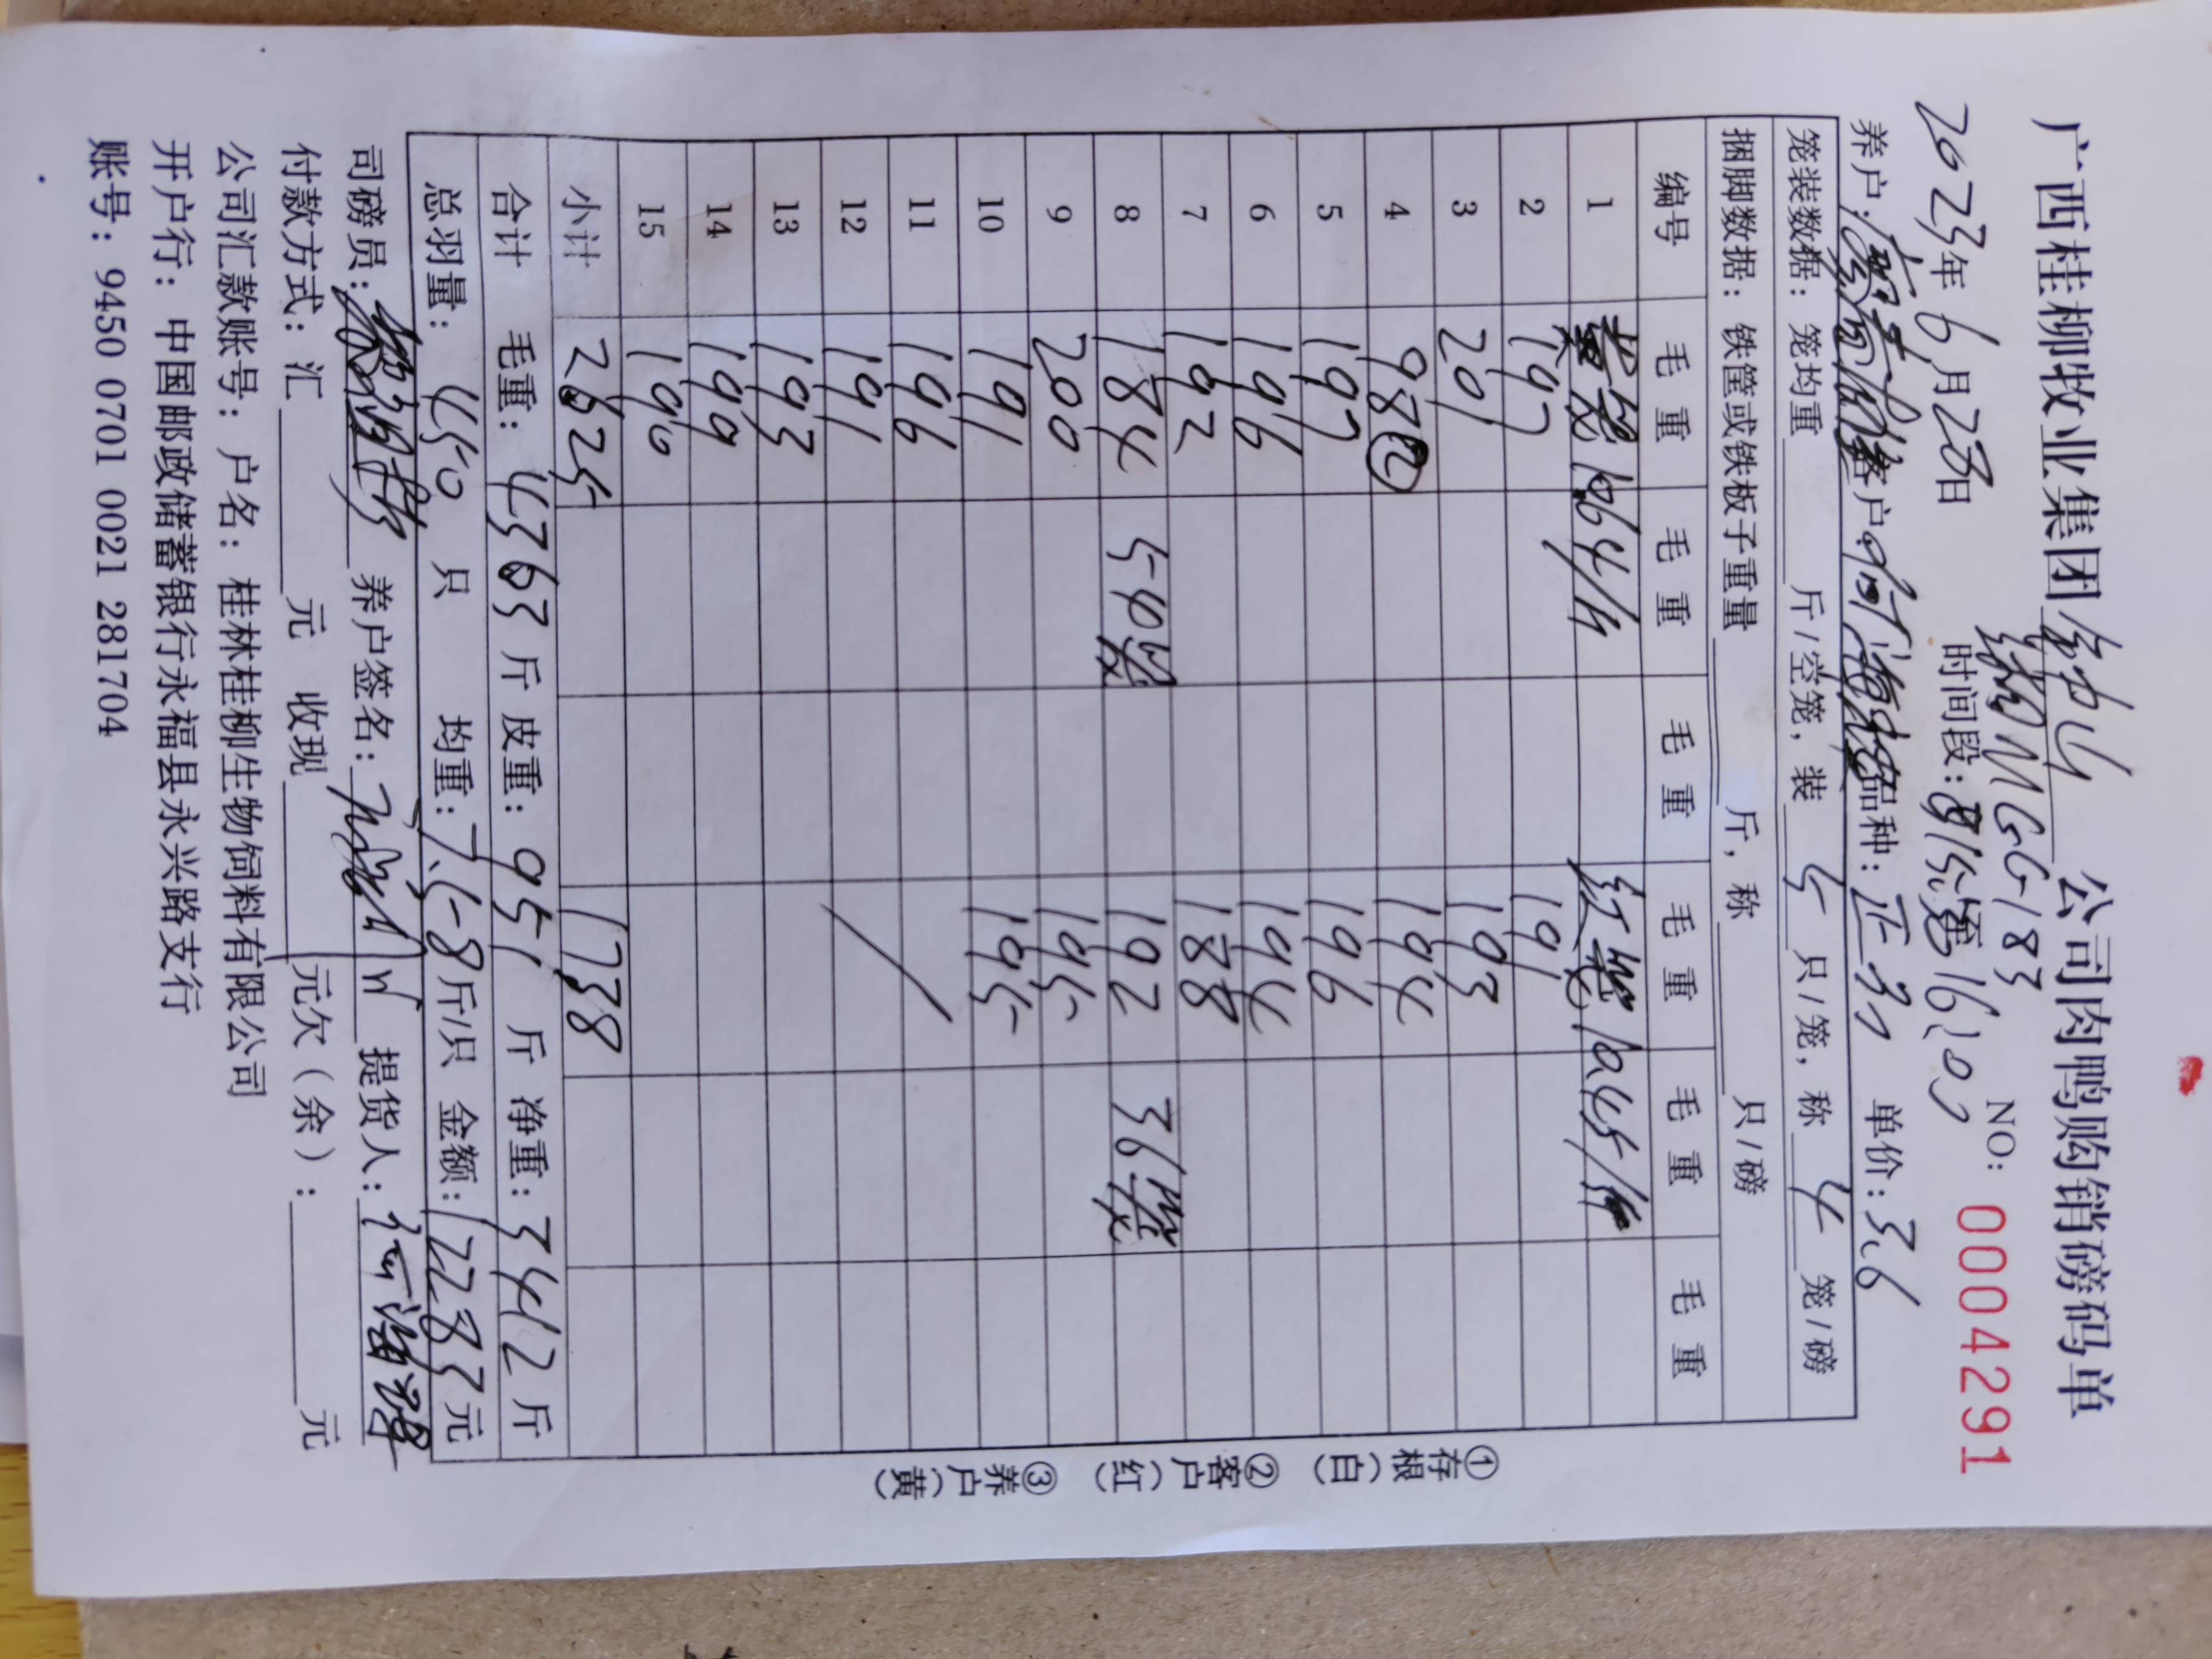 广西桂柳牧业集团 公司肉鸭购销磅码单
MGG183 NO: 0004291
2023年6月28日 时间段: 至16:09
养户: 客户: 品种: 单价: 3.6
笼装数据: 笼均重 斤/空笼, 装 5 只/笼, 称 4 笼/磅
捆脚数据: 铁筐或铁板子重量 斤, 称 只/磅
编号 毛重 毛重 毛重 毛重 毛重 毛重
1 黄笼 红笼
2 197 191
3 201 193
4 98② 194
5 197 196
6 196 194
7 192 188
8 184 54笼 192 36笼
9 200 195
10 191 195
11 196
12 191
13 193
14 199
15 190
小计 2625 1738
合计 毛重: 4363 斤 皮重: 951 斤 净重: 3412 斤
总羽量: 450 只 均重: 7.58 斤/只 金额: 12283 元
司磅员: 养户签名: 提货人:
付款方式: 汇 元 收现 元欠(余): 元
公司汇款账号: 户名: 桂林桂柳生物饲料有限公司
开户行: 中国邮政储蓄银行永福县永兴路支行
账号: 9450 0701 0021 281704
①存根(白) ②客户(红) ③养户(黄)